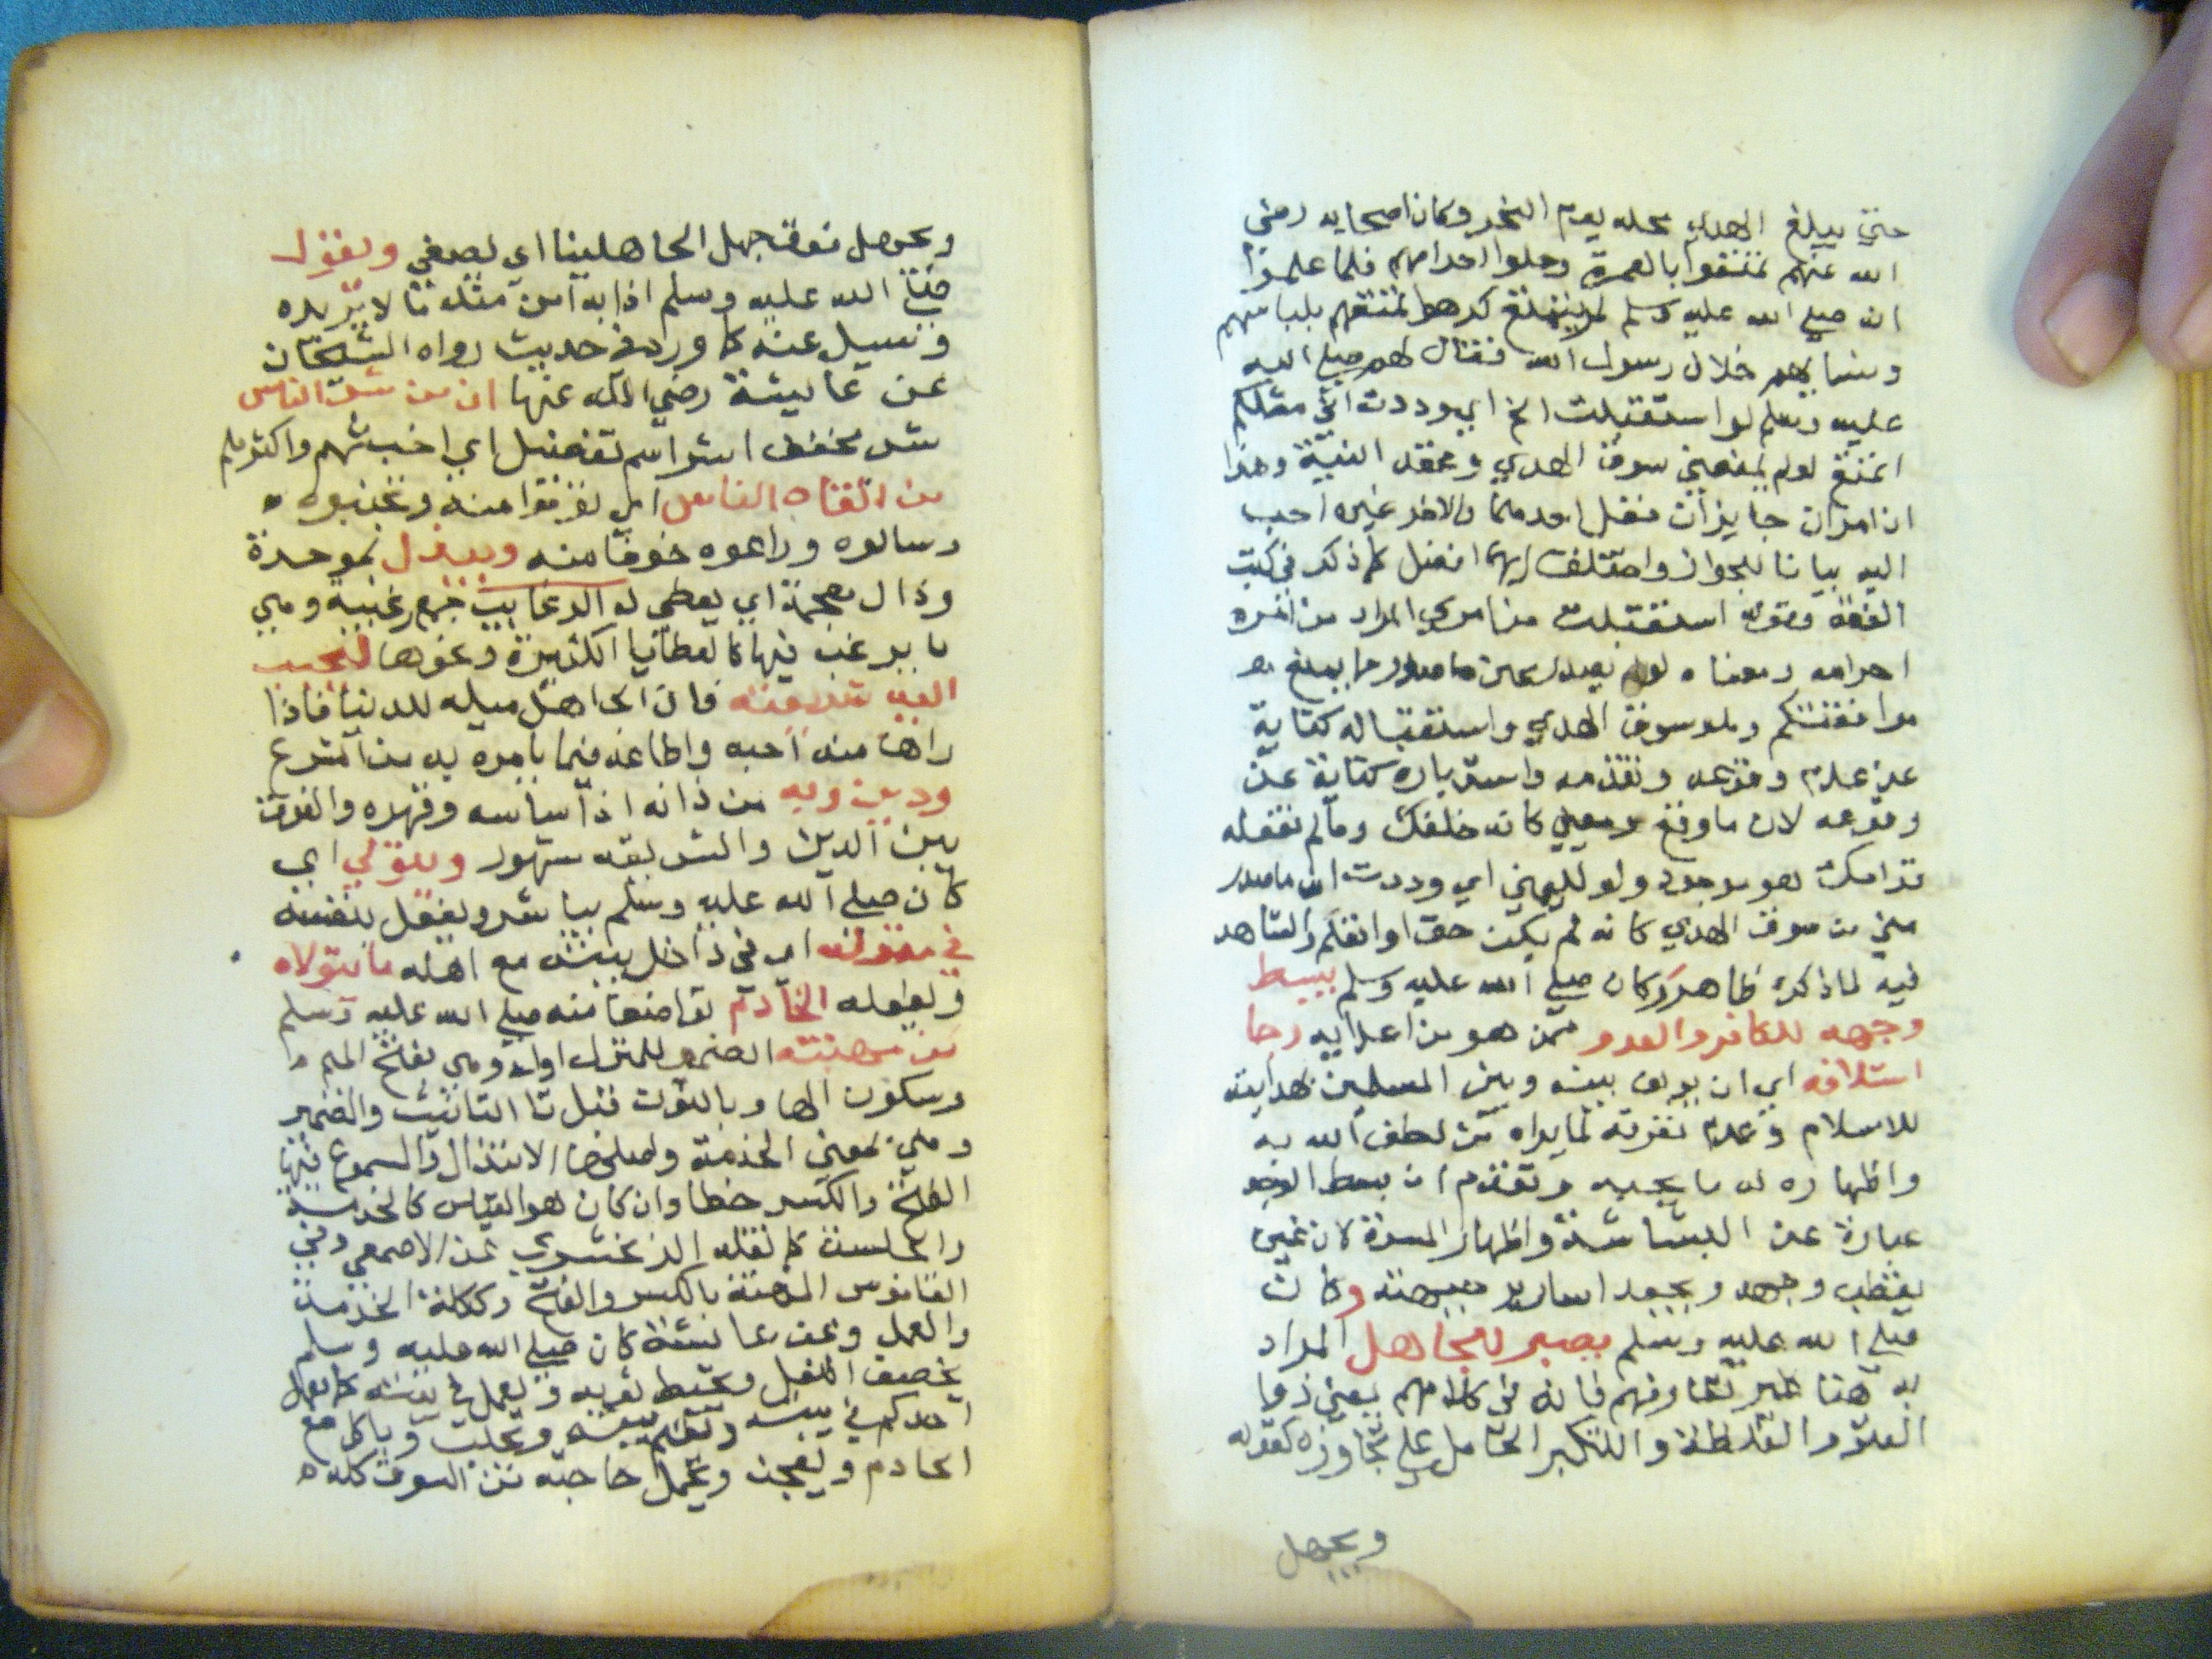 حتي يبلغ الهدي محله يوم النحر وكان اصحابه رضي
الله عنهم تمتعوا بالعمرة وحلوا احرامهم فلما علموا
انه صلي الله عليه وسلم لم يتمتع كرهوا تمتعهم بلباسهم
ونسايهم خلاف رسول الله فقال لهم صلي الله
عليه وسلم لو استقبلت الخ اي وددت اني مثلكم
اتمتع لو لم يمنعني سوق الهدي وعقد النية وهذا
ان امران جايزان فعل احدهما والاخر غيره احب
اليه بيانا للجواز واختلف ايهما افضل كما ذكر في كتب
الفقه وقوله استقبلت من امري المراد من امره
احرامه ومعناه لو لم يصدر مني ما صدر ما يمنع
موافقتكم وهو سوق الهدي واستقباله كناية
عن عدم وقوعه وتقدمه واستدباره كناية عن
وقوعه لان ما وقع ومضي كانه خلفك وما لم تفعله
قدامك هو موجود ولو للتمني اي وددت ان ما صدر
مني من سوق الهدي كانه لم يكن حتي اوافقكم والشاهد
فيه لما ذكره ظاهر وكان صلي الله عليه وسلم يبسط
وجهه للكافر والعدو ممن هو من اعدايه رجا
استلافه اي ان يولف بينه وبين المسلمين لهدايته
للاسلام وعدم نفرته لما يراه من لطف الله به
واظهاره له ما يحبه وتقدم ان بسط الوجه
عبارة عن البشاشة واظهار المسرة لان غيره
يقطب وجهه ويجعد اسارير جبهته وكان
صلي الله عليه وسلم يصبر للجاهل المراد
به هنا غير تعارفهم فانه في كلامهم يعني ذوا
العتو والغلظة والتكبر الحامل علي تجاوزه كقوله
ويجهل
ونجهل فوق جهل الجاهلينا اي يصغي ويقول
صلي الله عليه وسلم اذا به امن مثله ما لا يريده
وتسيل عنه كما ورد في حديث رواه الشيخان
عن عايشة رضي الله عنها ان من شر الناس
شر مخفف اشر اسم تفضيل اي اخبثهم واكثرهم
من اتقاه الناس اي تفرقوا منه وتجنبوه
وسالوه وراعوه خوفا منه ويبذل بموحدة
وذال معجمة اي يعطي له الرغايب جمع رغيبة وهي
ما يرغب فيها كالعطايا الكثيرة ونحوها ليحبب
اليه شريعته فان الجاهل ميله للدنيا فاذا
راها منه احبه واطاعه فيما يامره به من الشرع
ودين ربه من ذانه اذا ساسه وقهره والفرق
بين الدين والشريعة مشهور ويتولي اي
كان صلي الله عليه وسلم يباشر ويفعل بنفسه
في منزله اي في داخل بيته مع اهله ما يتولاه
ويفعله الخادم تواضعا منه صلي الله عليه وسلم
من مهنته الضمير للمنزل اوله وهي بفتح الميم
وسكون الها وبالنون قبل تا التانيث والضمير
وهي بمعني الخدمة واصلها الابتذال والمسموع فيها
الفتح والكسر خطا وان كان هو القياس كالخدمة
والجلسة كما نقله الزمخشري عن الاصمعي وفي
القاموس المهنة بالكسر والفتح وككلمة الخدمة
والعمل وعن عايشة كان صلي الله عليه وسلم
يخصف النعل ويخيط ثوبه ويعمل في بيته كما يعمل
احدكم في بيته ويقم بيته ويحلب وياكل مع
الخادم ويعجن ويحمل حاجته من السوق كله